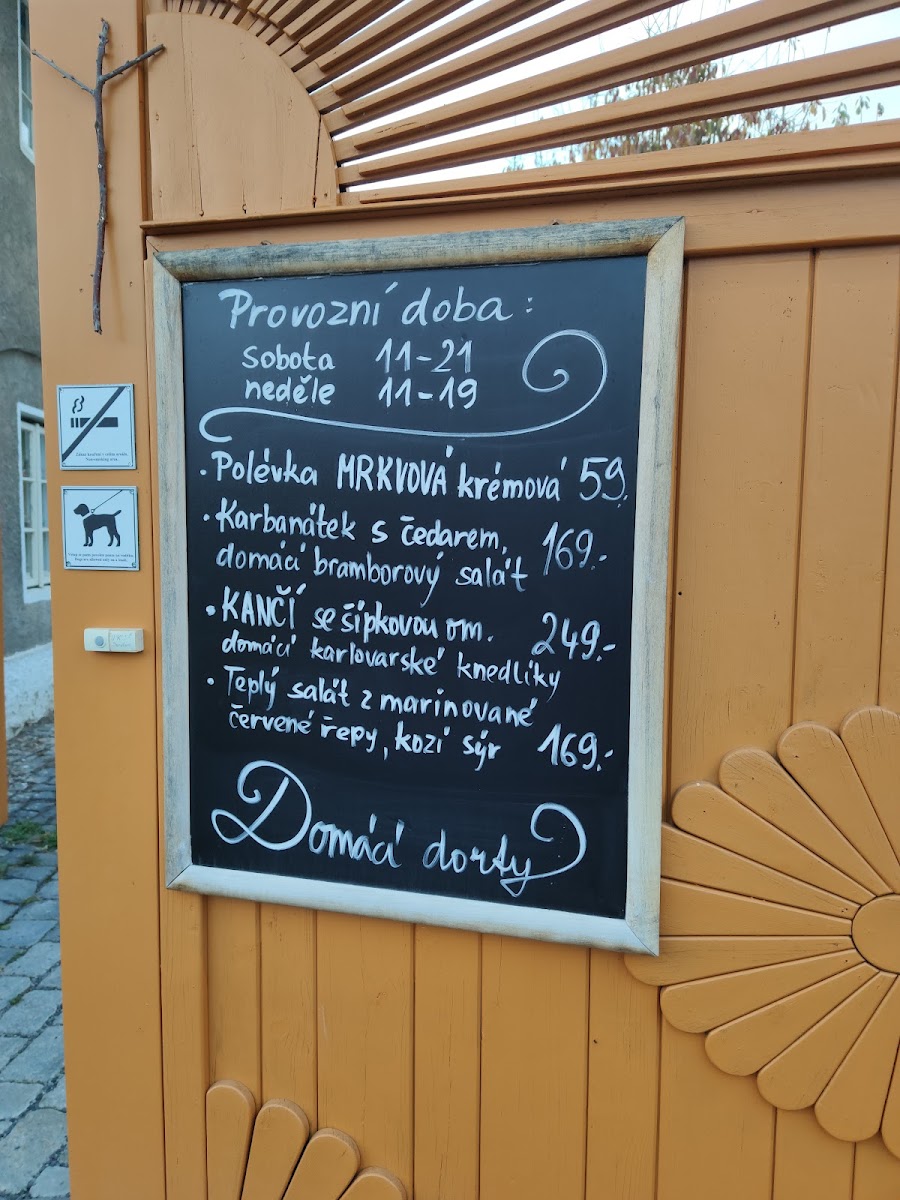 Provozní doba:
sobota 11-21
neděle 11-19
• Polévka MRKVOVÁ krémová 59,
• Karbanátek s čedarem, 169.-
domácí bramborový salát
• KANČÍ se šípkovou om. 249.-
domácí karlovarské knedlíky
• Teplý salát z marinované
červené řepy, kozí sýr 169.-
Domácí dorty